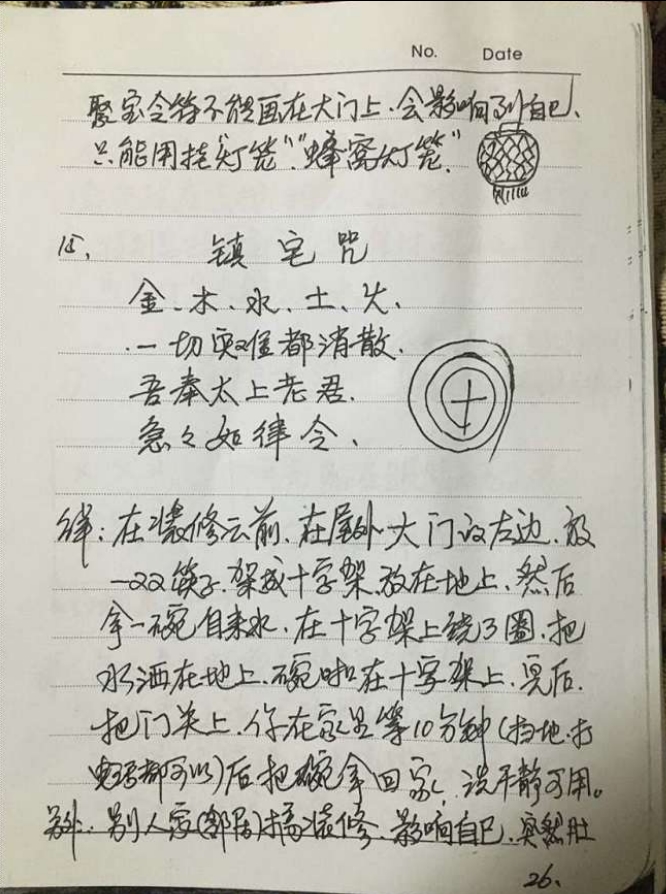 No. Date
聚宝令符不能画在大门上.会影响到自己、
只能用挂“灯笼”“蜂窝灯笼.”
15、 镇宅咒
金、木、水、土、火、
一切灾难都消散.
吾奉太上老君.
急々如律令、
在装修之前.在屋外大门的左边.放
一双筷子.架成十字架.放在地上.然后
拿一碗自来水.在十字架上绕3圈.把
水洒在地上.碗啪在十字架上.完后.
把门关上.你在家里等10分钟(扫地.打
电话都可以)后把碗拿回家、洗干静可用。
另外:别人家(邻居)搞装修.影响自己.突然肚
26、